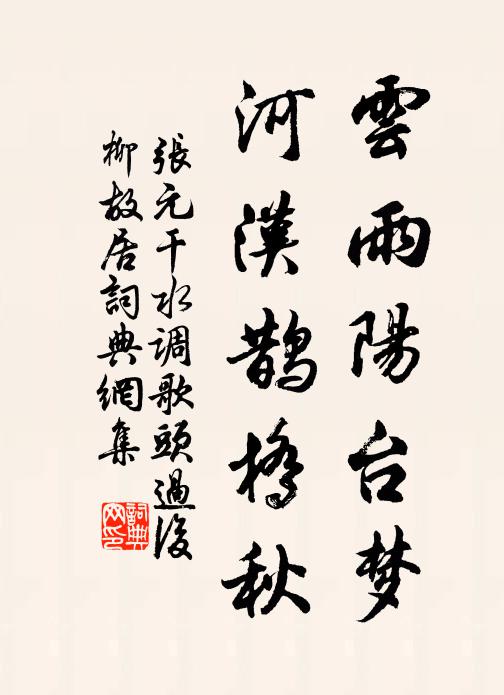 雲雨陽台梦
河漢鹊橋秋
張元干水调歌頭過後
柳故居詞典網集
詞典
网印